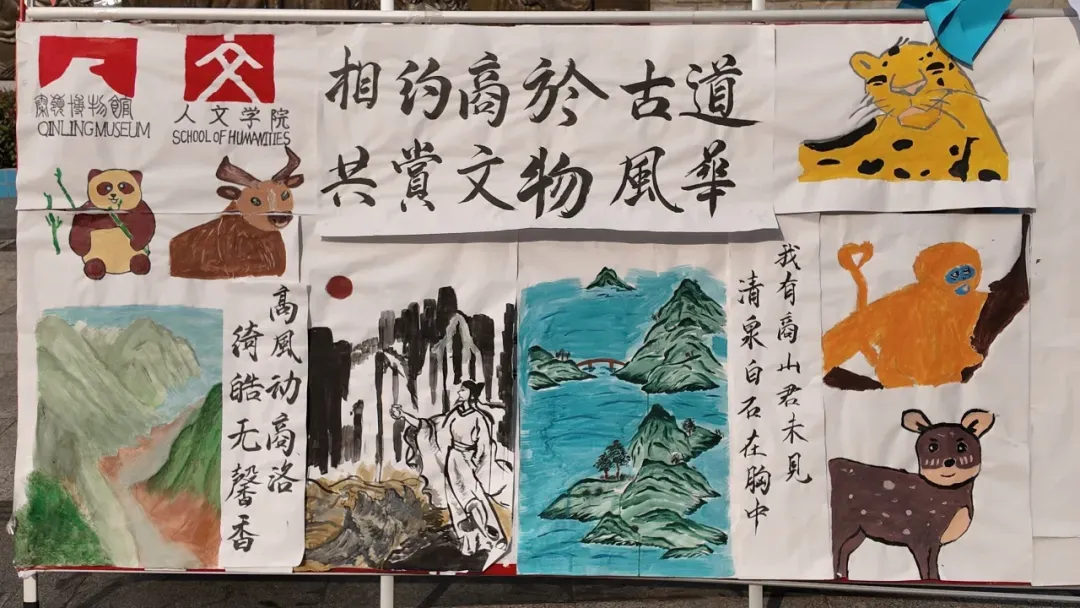 秦嶺博物館
QINLING MUSEUM
人文学院
SCHOOL OF HUMANITIES
相约商於古道
共赏文物風華
我有商山君未見
清泉白石在胸中
高風动商洛
绮皓无馨香